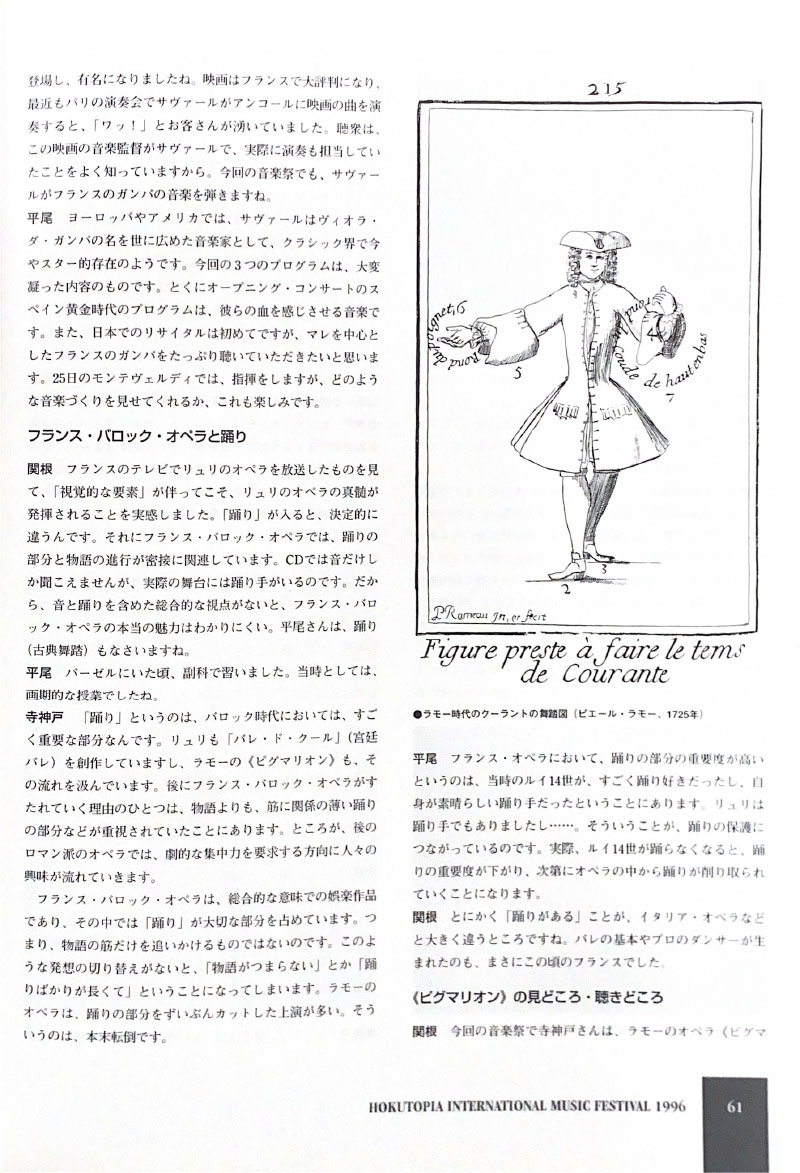 登場し、有名になりましたね。映画はフランスで大評判になり、
最近もパリの演奏会でサヴァールがアンコールに映画の曲を演
奏すると、「ワッ！」とお客さんが湧いていました。聴衆は、
この映画の音楽監督がサヴァールで、実際に演奏も担当してい
たことをよく知っていますから。今回の音楽祭でも、サヴァー
ルがフランスのガンバの音楽を弾きますね。
平尾　ヨーロッパやアメリカでは、サヴァールはヴィオラ・
ダ・ガンバの名を世に広めた音楽家として、クラシック界で今
やスター的存在のようです。今回の３つのプログラムは、大変
凝った内容のものです。とくにオープニング・コンサートのス
ペイン黄金時代のプログラムは、彼らの血を感じさせる音楽で
す。また、日本でのリサイタルは初めてですが、マレを中心と
したフランスのガンバをたっぷり聴いていただきたいと思いま
す。25日のモンテヴェルディでは、指揮をしますが、どのよう
な音楽づくりを見せてくれるか、これも楽しみです。
フランス・バロック・オペラと踊り
関根　フランスのテレビでリュリのオペラを放送したものを見
て、「視覚的な要素」が伴ってこそ、リュリのオペラの真髄が
発揮されることを実感しました。「踊り」が入ると、決定的に
違うんです。それにフランス・バロック・オペラでは、踊りの
部分と物語の進行が密接に関連しています。CDでは音だけし
か聞こえませんが、実際の舞台には踊り手がいるのです。だか
ら、音と踊りを含めた総合的な視点がないと、フランス・バロ
ック・オペラの本当の魅力はわかりにくい。平尾さんは、踊り
（古典舞踏）もなさいますね。
平尾　バーゼルにいた頃、副科で習いました。当時としては、
画期的な授業でしたね。
寺神戸　「踊り」というのは、バロック時代においては、すご
く重要な部分なんです。リュリも「バレ・ド・クール」（宮廷
バレ）を創作していますし、ラモーの《ピグマリオン》も、そ
の流れを汲んでいます。後にフランス・バロック・オペラがす
たれていく理由のひとつは、物語よりも、筋に関係の薄い踊り
の部分などが重視されていたことにあります。ところが、後の
ロマン派のオペラでは、劇的な集中力を要求する方向に人々の
興味が流れていきます。
　フランス・バロック・オペラは、総合的な意味での娯楽作品
であり、その中では「踊り」が大切な部分を占めています。つ
まり、物語の筋だけを追いかけるものではないのです。このよ
うな発想の切り替えがないと、「物語がつまらない」とか「踊
りばかりが長くて」ということになってしまいます。ラモーの
オペラは、踊りの部分をずいぶんカットした上演が多い。そう
いうのは、本末転倒です。
215
Rond du poignet, 6
5
4
rond du coude de haut en bas
7
3
2
P. Rameau In, et fecit
Figure preste à faire le tems
de Courante
●ラモー時代のクーラントの舞踏図（ピエール・ラモー、1725年）
平尾　フランス・オペラにおいて、踊りの部分の重要度が高い
というのは、当時のルイ14世が、すごく踊り好きだったし、自
身が素晴らしい踊り手だったということにあります。リュリは
踊り手でもありましたし……。そういうことが、踊りの保護に
つながっているのです。実際、ルイ14世が踊らなくなると、踊
りの重要度が下がり、次第にオペラの中から踊りが削り取られ
ていくことになります。
関根　とにかく「踊りがある」ことが、イタリア・オペラなど
と大きく違うところですね。バレの基本やプロのダンサーが生
まれたのも、まさにこの頃のフランスでした。
《ピグマリオン》の見どころ・聴きどころ
関根　今回の音楽祭で寺神戸さんは、ラモーのオペラ《ピグマ
HOKUTOPIA INTERNATIONAL MUSIC FESTIVAL 1996　61